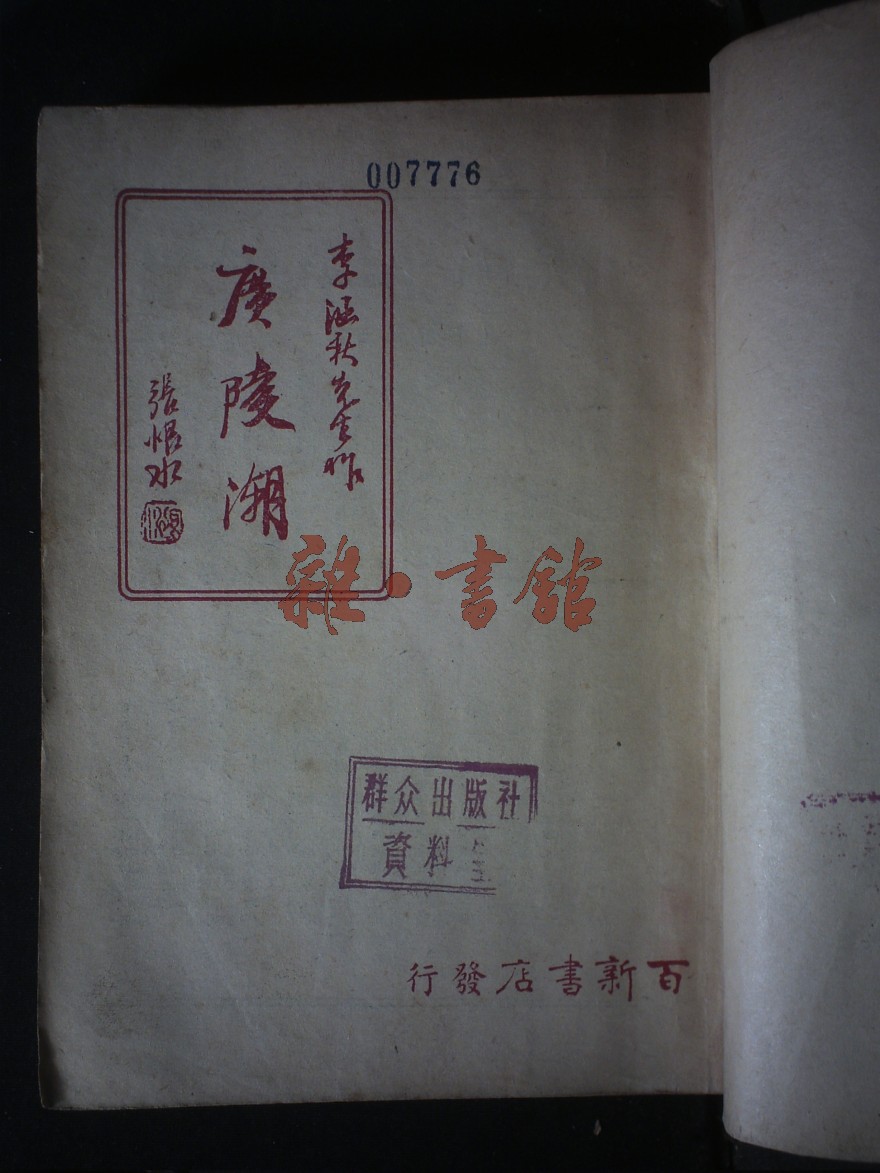 007776
李涵秋先生作
廣陵潮
張恨水
雜·書館
群众出版社
資料
百新書店發行